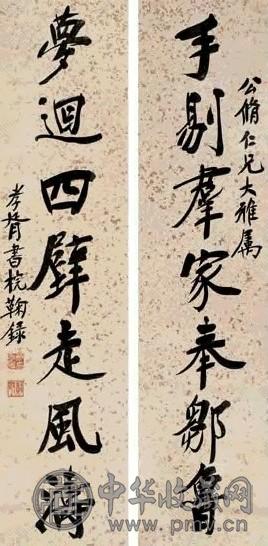 公脩仁兄大雅属
手剔羣家奉鄒魯
夢迴四壁走風濤
孝胥書梡鞠録
中华收藏网